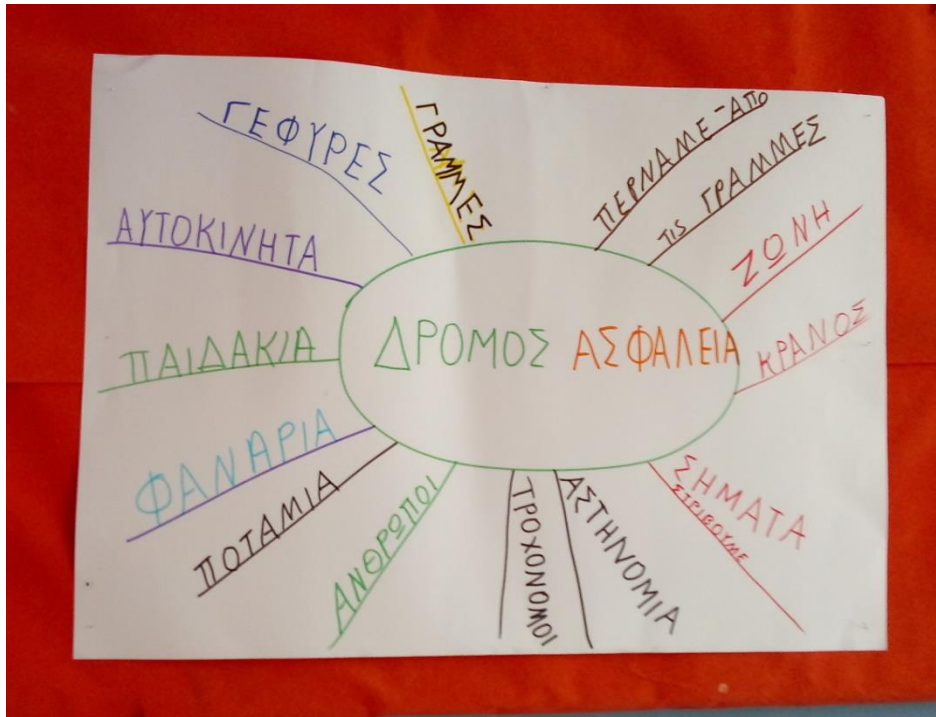 ΔΡΟΜΟΣ ΑΣΦΑΛΕΙΑ
ΓΡΑΜΜΕΣ
ΠΕΡΝΑΜΕ-ΑΠΟ
ΤΙΣ ΓΡΑΜΜΕΣ
ΖΩΝΗ
ΚΡΑΝΟΣ
ΣΗΜΑΤΑ
ΣΤΡΙΒΟΥΜΕ
ΑΣΤΗΝΟΜΙΑ
ΤΡΟΧΟΝΟΜΟΙ
ΑΝΘΡΩΠΟΙ
ΠΟΤΑΜΙΑ
ΦΑΝΑΡΙΑ
ΠΑΙΔΑΚΙΑ
ΑΥΤΟΚΙΝΗΤΑ
ΓΕΦΥΡΕΣ